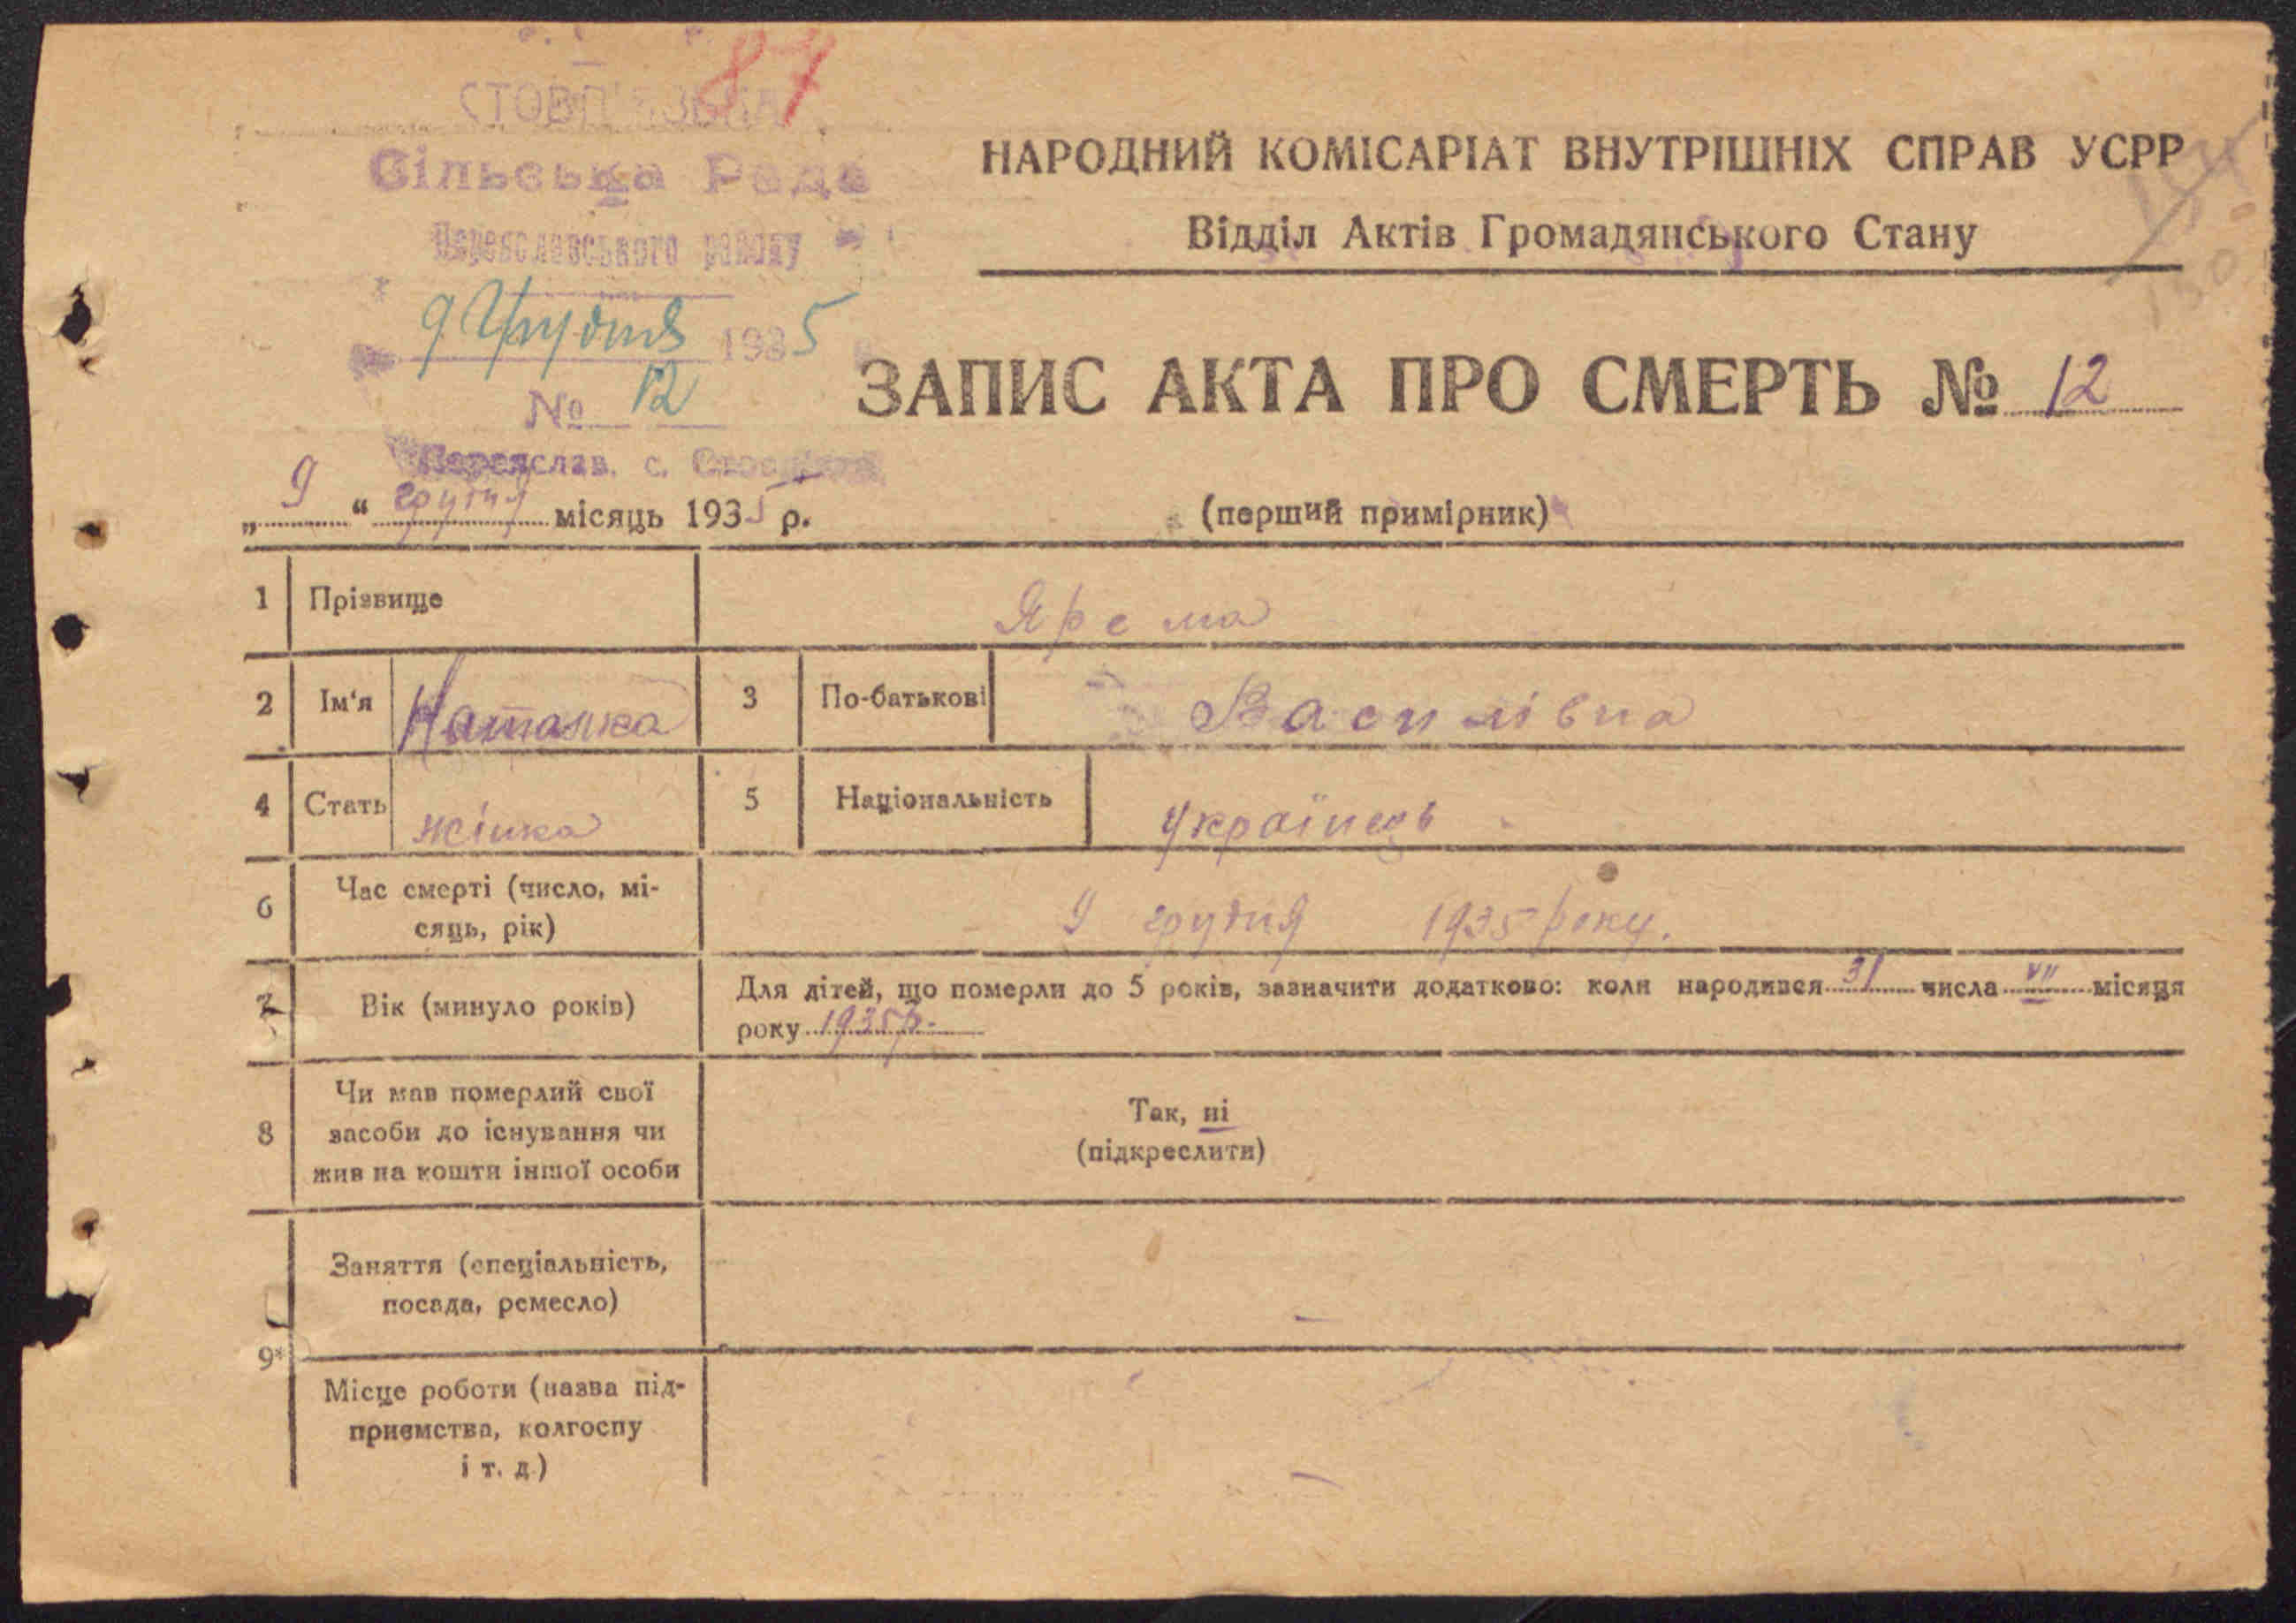 87
СТОВП'ЯЗЬКА
Сільська Рада
Переяславського району
9 Грудня 1935
№ 12
Переяслав. с.
НАРОДНИЙ КОМІСАРІАТ ВНУТРІШНІХ СПРАВ УСРР
Відділ Актів Громадянського Стану
ЗАПИС АКТА ПРО СМЕРТЬ № 12
„ 9 “ грудня місяць 1935 р.
(перший примірник)
1 Прізвище Ярема
2 Ім'я Наталка 3 По-батькові Василівна
4 Стать жінка 5 Національність українець
6 Час смерті (число, мі-
сяць, рік) 9 грудня 1935 року.
7 Вік (минуло років) Для дітей, що померли до 5 років, зазначити додатково: коли народився 31 числа VII місяця
року 1935 р.
8 Чи мав померлий свої
засоби до існування чи
жив на кошти іншої особи
Так, ні
(підкреслити)
Заняття (спеціальність,
посада, ремесло)
9*
Місце роботи (назва під-
приємства, колгоспу
і т. д.)